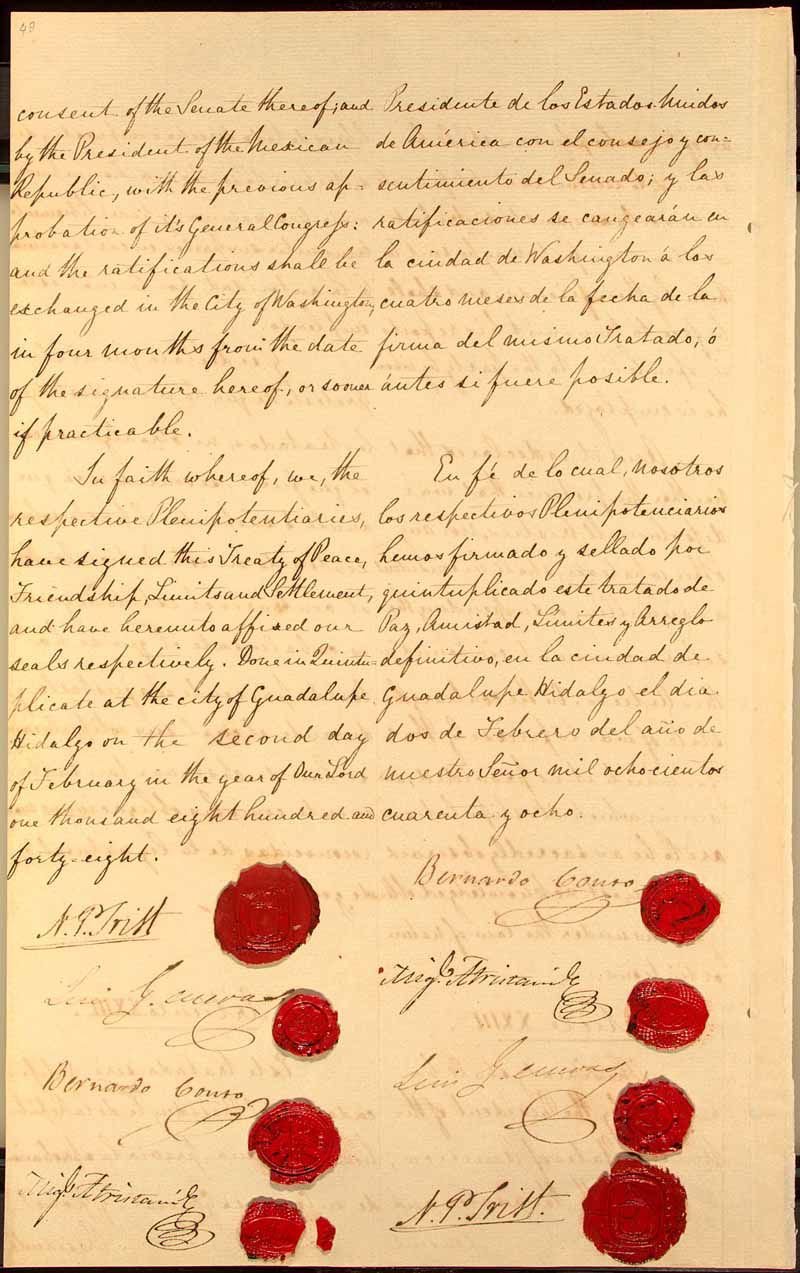 48
consent of the Senate thereof; and
by the President of the Mexican
Republic, with the previous ap=
probation of it's General Congress:
and the ratifications shall be
exchanged in the City of Washington,
in four months from the date
of the signature hereof, or sooner
if practicable.
In faith whereof, we, the
respective Plenipotentiaries,
have signed this Treaty of Peace,
Friendship, Limits and Settlement,
and have hereunto affixed our
seals respectively. Done in Quintu=
plicate at the city of Guadalupe
Hidalgo on the second day
of February in the year of Our Lord
one thousand eight hundred and
forty-eight.
N. P. Trist
Luis G. Cuevas
Bernardo Couto
Migl. Atristain
Presidente de los Estados-Unidos
de América con el consejo y con=
sentimiento del Senado; y las
ratificaciones se cangearán en
la ciudad de Washington á los
cuatro meses de la fecha de la
firma del mismo Tratado, ó
ántes si fuere posible.
En fé de lo cual, nosotros
los respectivos Plenipotenciarios
hemos firmado y sellado por
quintuplicado este tratado de
Paz, Amistad, Límites y Arreglo
definitivo, en la ciudad de
Guadalupe Hidalgo el dia
dos de Febrero del año de
nuestro Señor mil ochocientos
cuarenta y ocho.
Bernardo Couto
Migl. Atristain
Luis G. Cuevas
N. P. Trist.